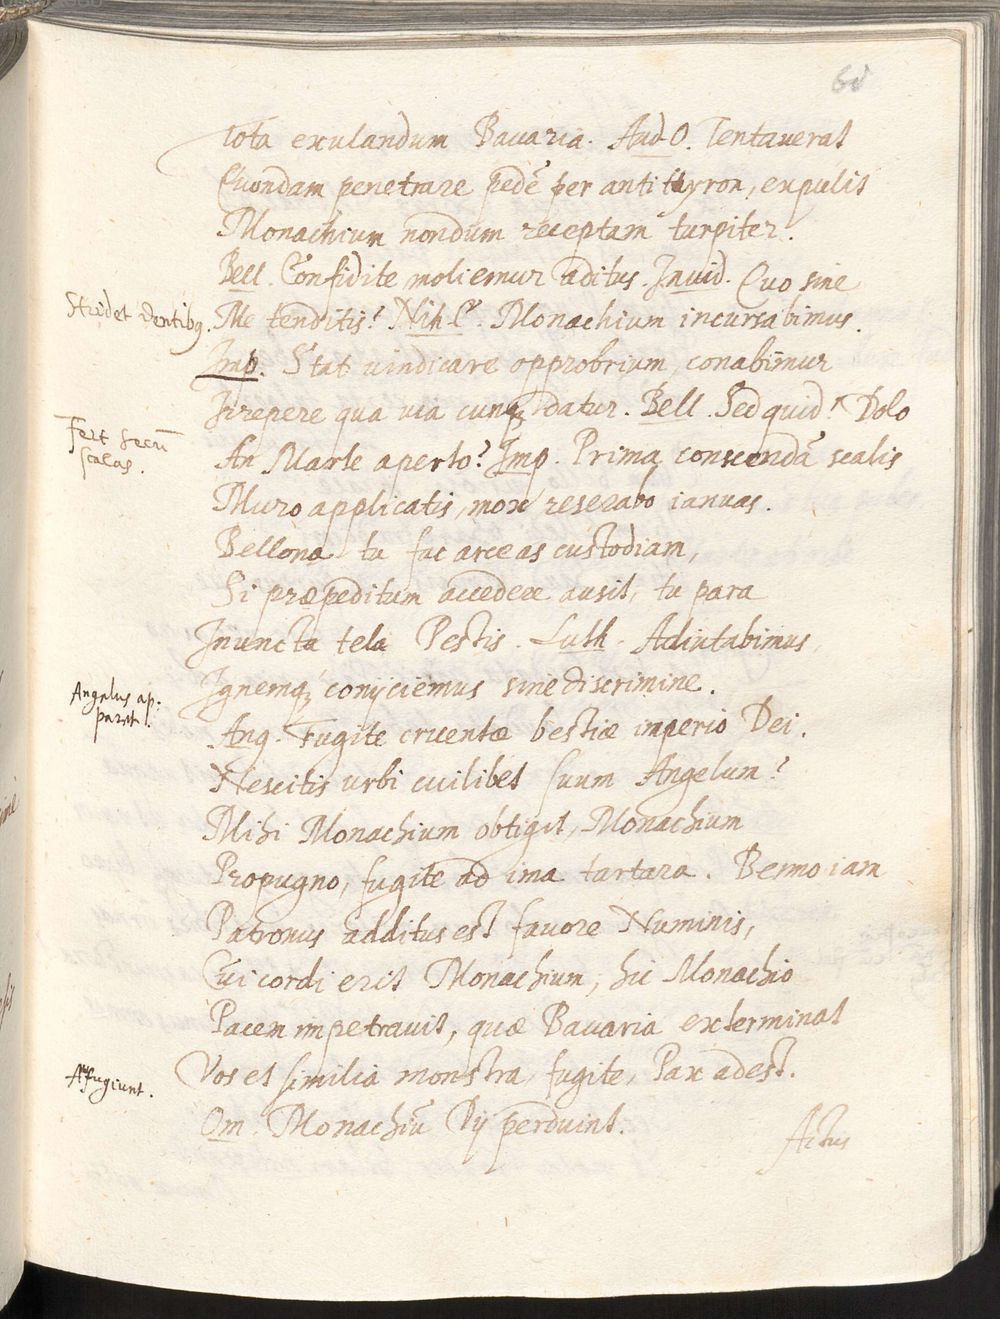 60
Tota exulandum Bauaria. Aud. O. Tentauerat
Quondam penetrare pedẽ per antithyron, expulit
Monachium nondum receptam turpiter.
Bell. Confidite moliemur aditus. Inuid. Quo sine
Stridet dentibꝫ.
Me tenditis? Nih. Monachium incursabimus.
Imp. Stat uindicare opprobrium, conabimur
Irrepere qua uia cunqꝫ datur. Bell. Sed quid? Dolo
Fert secũ
scalas.
An Marte aperto? Imp. Prima conscendã scalis
Muro applicatis, mox reserabo ianuas.
Bellona tu fac arceas custodiam,
Si præpeditum accedere ausit, tu para
Inuncta tela Pestis. Luth. Adiutabimus,
Ignemqꝫ conijciemus sine discrimine.
Angelus ap-
paret.
Ang. Fugite cruentæ bestiæ imperio Dei.
Nescitis urbi cuilibet suum Angelum?
Mihi Monachium obtigit, Monachium
Propugno, fugite ad ima tartara. Benno iam
Patronus additus est fauore Numinis,
Cui cordi erit Monachium, hic Monachio
Pacem impetrauit, quæ Bauaria exterminat
Vos et similia monstra, fugite, Pax adest.
Aufugiunt.
Om. Monachiũ Dij perduint.
Actus